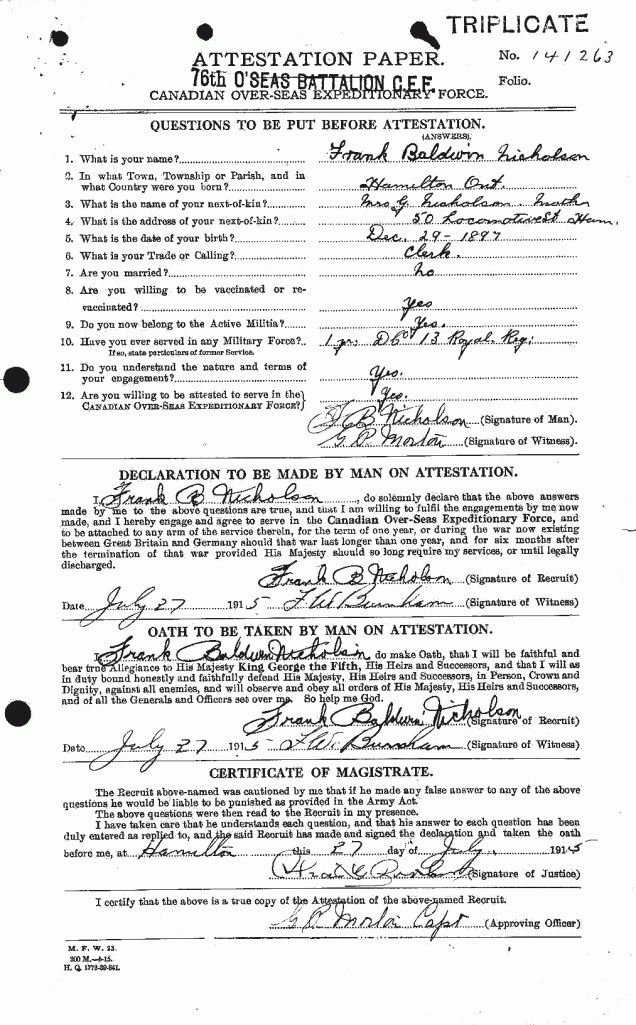 TRIPLICATE
ATTESTATION PAPER.
No. 141263
76th O'SEAS BATTALION C.E.F.
Folio.
CANADIAN OVER-SEAS EXPEDITIONARY FORCE.
QUESTIONS TO BE PUT BEFORE ATTESTATION.
(ANSWERS).
1. What is your name? Frank Baldwin Nicholson
2. In what Town, Township or Parish, and in
what Country were you born? Hamilton Ont.
3. What is the name of your next-of-kin? Mrs G. Nicholson. Mother
4. What is the address of your next-of-kin? 50 Locomotive St Ham.
5. What is the date of your birth? Dec. 29 - 1897
6. What is your Trade or Calling? Clerk.
7. Are you married? No
8. Are you willing to be vaccinated or re-
vaccinated? Yes
9. Do you now belong to the Active Militia? Yes.
10. Have you ever served in any Military Force? 1 yr. D Co 13 Royal. Reg:
If so, state particulars of former Service.
11. Do you understand the nature and terms of
your engagement? Yes.
12. Are you willing to be attested to serve in the
CANADIAN OVER-SEAS EXPEDITIONARY FORCE? Yes.
F B Nicholson (Signature of Man).
G P Morton (Signature of Witness).
DECLARATION TO BE MADE BY MAN ON ATTESTATION.
I, Frank B Nicholson, do solemnly declare that the above answers
made by me to the above questions are true, and that I am willing to fulfil the engagements by me now
made, and I hereby engage and agree to serve in the Canadian Over-Seas Expeditionary Force, and
to be attached to any arm of the service therein, for the term of one year, or during the war now existing
between Great Britain and Germany should that war last longer than one year, and for six months after
the termination of that war provided His Majesty should so long require my services, or until legally
discharged.
Frank B Nicholson (Signature of Recruit)
Date July 27 1915 F W Burnham (Signature of Witness)
OATH TO BE TAKEN BY MAN ON ATTESTATION.
I, Frank Baldwin Nicholson do make Oath, that I will be faithful and
bear true Allegiance to His Majesty King George the Fifth, His Heirs and Successors, and that I will as
in duty bound honestly and faithfully defend His Majesty, His Heirs and Successors, in Person, Crown and
Dignity, against all enemies, and will observe and obey all orders of His Majesty, His Heirs and Successors,
and of all the Generals and Officers set over me. So help me God.
Frank Baldwin Nicholson (Signature of Recruit)
Date July 27 1915 F W. Burnham (Signature of Witness)
CERTIFICATE OF MAGISTRATE.
The Recruit above-named was cautioned by me that if he made any false answer to any of the above
questions he would be liable to be punished as provided in the Army Act.
The above questions were then read to the Recruit in my presence.
I have taken care that he understands each question, and that his answer to each question has been
duly entered as replied to, and the said Recruit has made and signed the declaration and taken the oath
before me, at Hamilton this 27 day of July 1915
(Signature of Justice)
I certify that the above is a true copy of the Attestation of the above-named Recruit.
G P Morton Capt (Approving Officer)
M. F. W. 23.
200 M.—6-15.
H. Q. 1772-39-841.